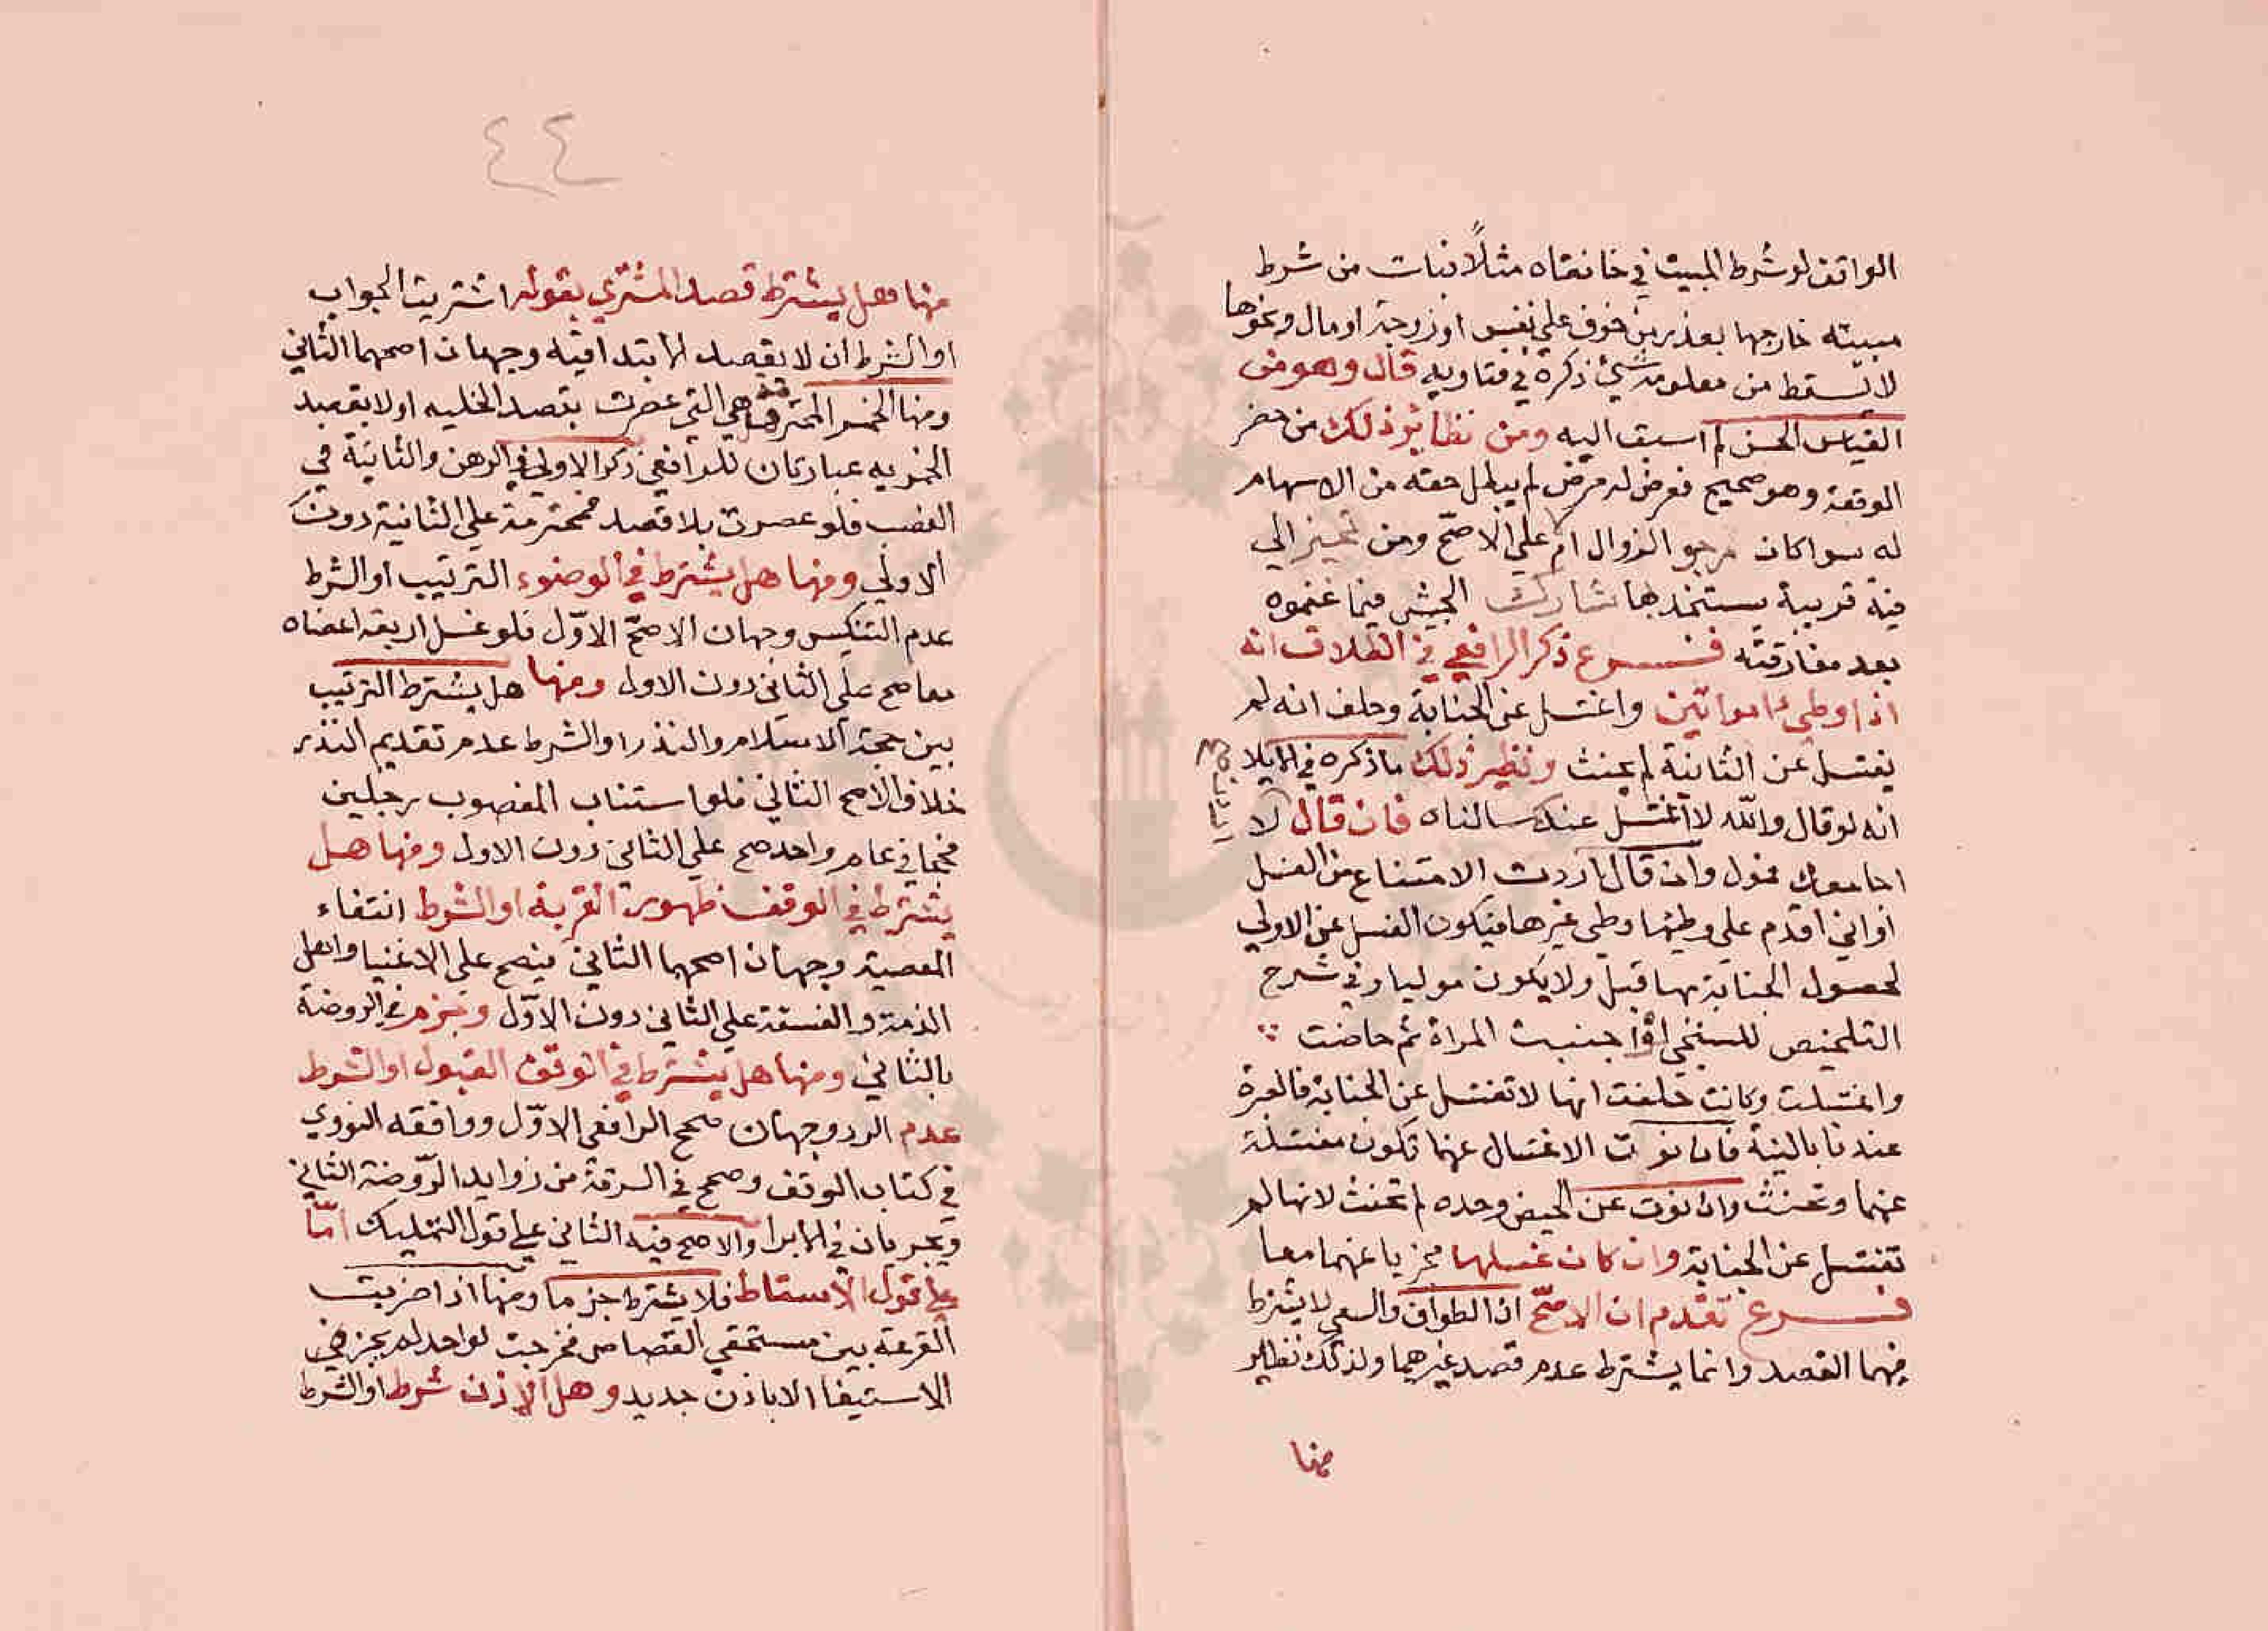 الواقف لو شرط المبيت في خانقاه مثلاً فبات من شرط
مبيته خارجها بعذر من خوف على نفس او زوجة او مال ونحوها
لا يسقط من معلومه شيئ ذكره في فتاويه قال وهو من
القياس الحسن لم اسبق اليه ومن نظاير ذلك من حضر
الوقعة وهو صحيح فعرض له مرض لم يبطل حقه من الاسهام
له سوا كان مرجو الزوال ام لا على الاصح ومن تحيز الى
فية قريبة يستنجدها شارك الجيش فيما غنموه
بعد مفارقته فرع ذكر الرافعي في الطلاق انه
اذا وطئ امراتين واغتسل عن الجنابة وحلف انه لم
يغتسل عن الثانية لم يحنث ونظير ذلك ما ذكره في الايلا
انه لو قال والله لا اغتسل عنك سالناه فان قال لا
اجامعك فمول وان قال اردت الامتناع من الغسل
او اني اقدم على وطيها وطي غيرها فيكون الغسل عن الاولى
لحصول الجنابة بها قبل ولا يكون موليا وفي شرح
التلخيص للسنجي اذا اجنبت المراة ثم حاضت
واغتسلت وكانت حلفت انها لا تغتسل عن الجنابة فالعبرة
عندنا بالنية فان نوت الاغتسال عنهما تكون مغتسلة
عنهما وتحنث وان نوت عن الحيض وحده لم تحنث لانها لم
تغتسل عن الجنابة وان كان غسلها مجزيا عنهما معا
فرع تقدم ان الاصح ان الطواف والسعي لا يشترط
فيهما القصد وانما يشترط عدم قصد غيرهما ولذلك نظاير
منها
٤٤
منها هل يشترط قصد المشتري بقوله اشتريت الجواب
او الشرط ان لا يقصد الابتدا فيه وجهان اصحهما الثاني
ومنها الخمر المحترمة هي التي عصرت بقصد الخلية او لا بقصد
الخمرية عبارتان للرافعي ذكر الاولى في الرهن والثانية في
الغصب فلو عصرت بلا قصد فمحترمة على الثانية دون
الاولى ومنها هل يشترط في الوضوء الترتيب او الشرط
عدم التنكيس وجهان الاصح الاوّل فلو غسل اربعة اعضاه
معا صح على الثاني دون الاول ومنها هل يشترط الترتيب
بين حجة الاسلام والنذر او الشرط عدم تقديم النذر
خلاف الاصح الثاني فلو استناب المغصوب رجلين
فحجا في عام واحد صح على الثاني دون الاول ومنها هل
يشترط في الوقف ظهور القربة او الشرط انتفاء
المعصية وجهان اصحهما الثاني فيصح على الاغنيا واهل
الذمة والفسقة على الثاني دون الاوّل وجزم في الروضة
بالثاني ومنها هل يشترط في الوقف القبول او الشرط
عدم الرد وجهان صحح الرافعي الاوّل ووافقه النووي
في كتاب الوقف وصحح في السرقة من زوايد الرّوضة الثاني
ويجريان في الابرا والاصح فيه الثاني على قول التمليك امّا
على قول الاسقاط فلا يشترط جزما ومنها اذا ضربت
القرعة بين مستحقي القصاص فخرجت لواحد لم يجز في
الاستيفا الا باذن جديد وهل الاذن شرط او الشرط